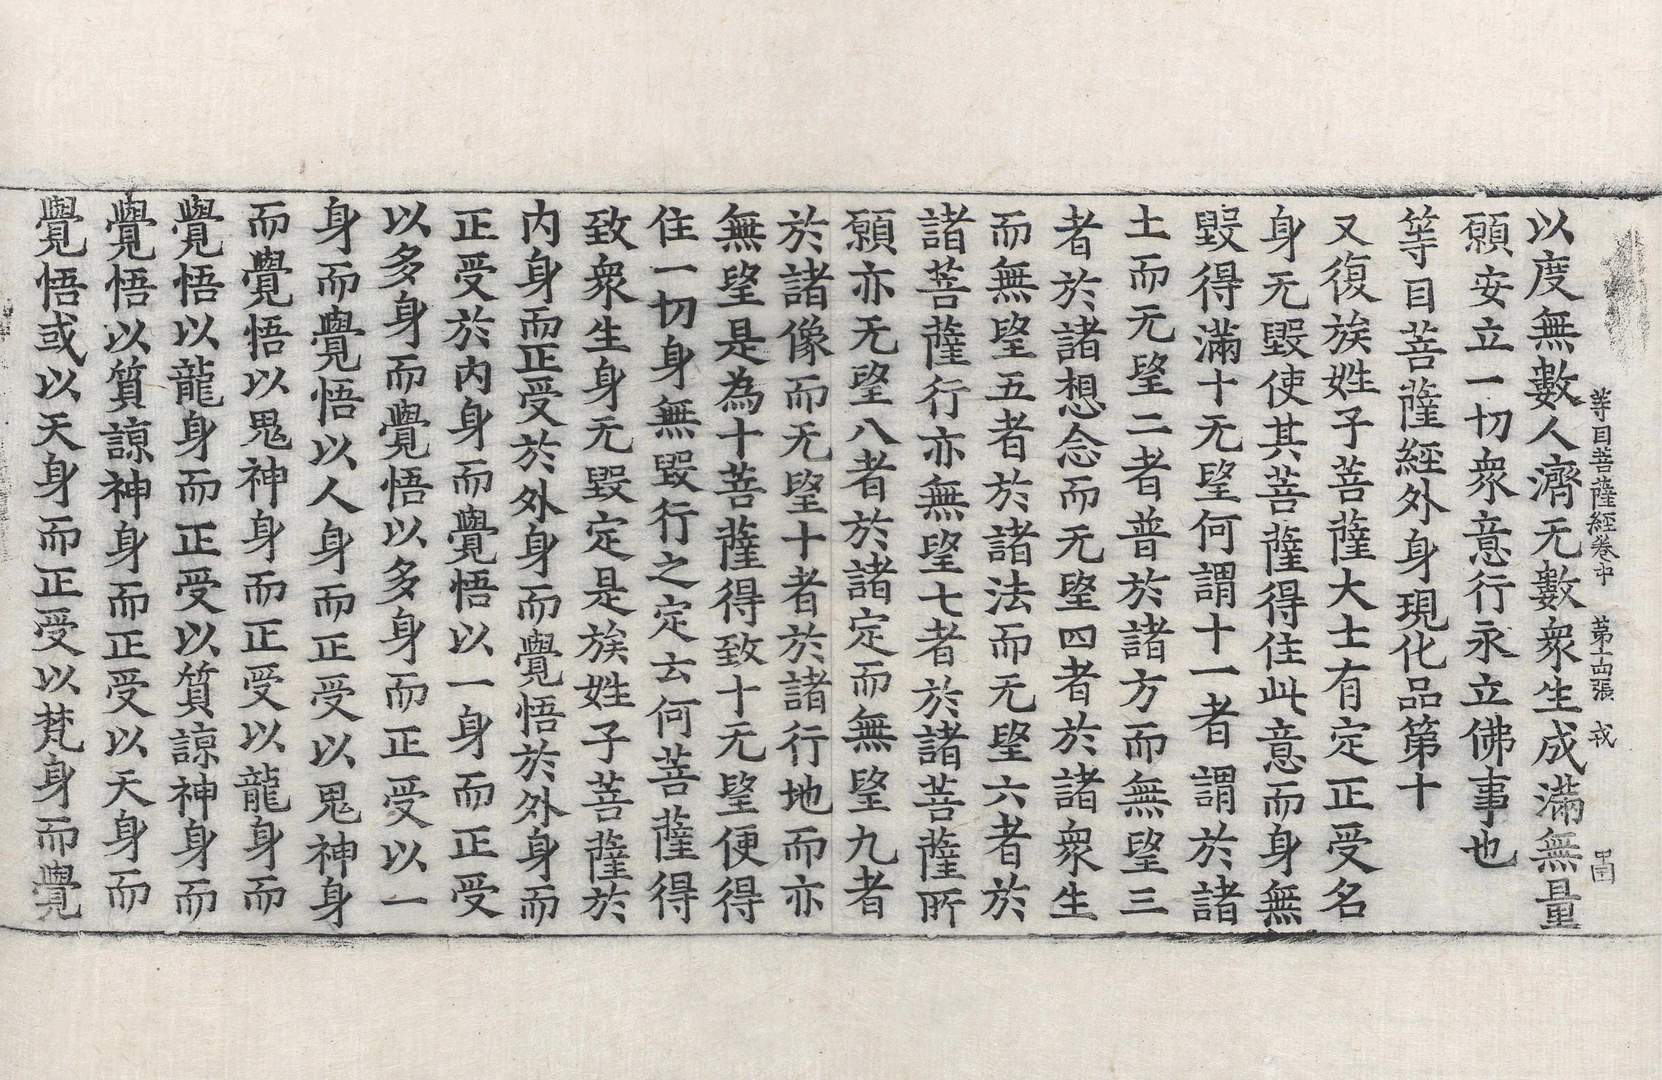 等目菩薩經卷中 第十四張 戎
以度無數人濟无數衆生成滿無量
願安立一切衆意行永立佛事也
等目菩薩經外身現化品第十
又復族姓子菩薩大士有定正受名
身无毀使其菩薩得住此意而身無
毀得滿十无望何謂十一者謂於諸
土而无望二者普於諸方而無望三
者於諸想念而无望四者於諸衆生
而無望五者於諸法而无望六者於
諸菩薩行亦無望七者於諸菩薩所
願亦无望八者於諸定而無望九者
於諸像而无望十者於諸行地而亦
無望是為十菩薩得致十无望便得
住一切身無毀行之定云何菩薩得
致衆生身无毀定是族姓子菩薩於
內身而正受於外身而覺悟於外身而
正受於內身而覺悟以一身而正受
以多身而覺悟以多身而正受以一
身而覺悟以人身而正受以鬼神身
而覺悟以鬼神身而正受以龍身而
覺悟以龍身而正受以質諒神身而
覺悟以質諒神身而正受以天身而
覺悟或以天身而正受以梵身而覺